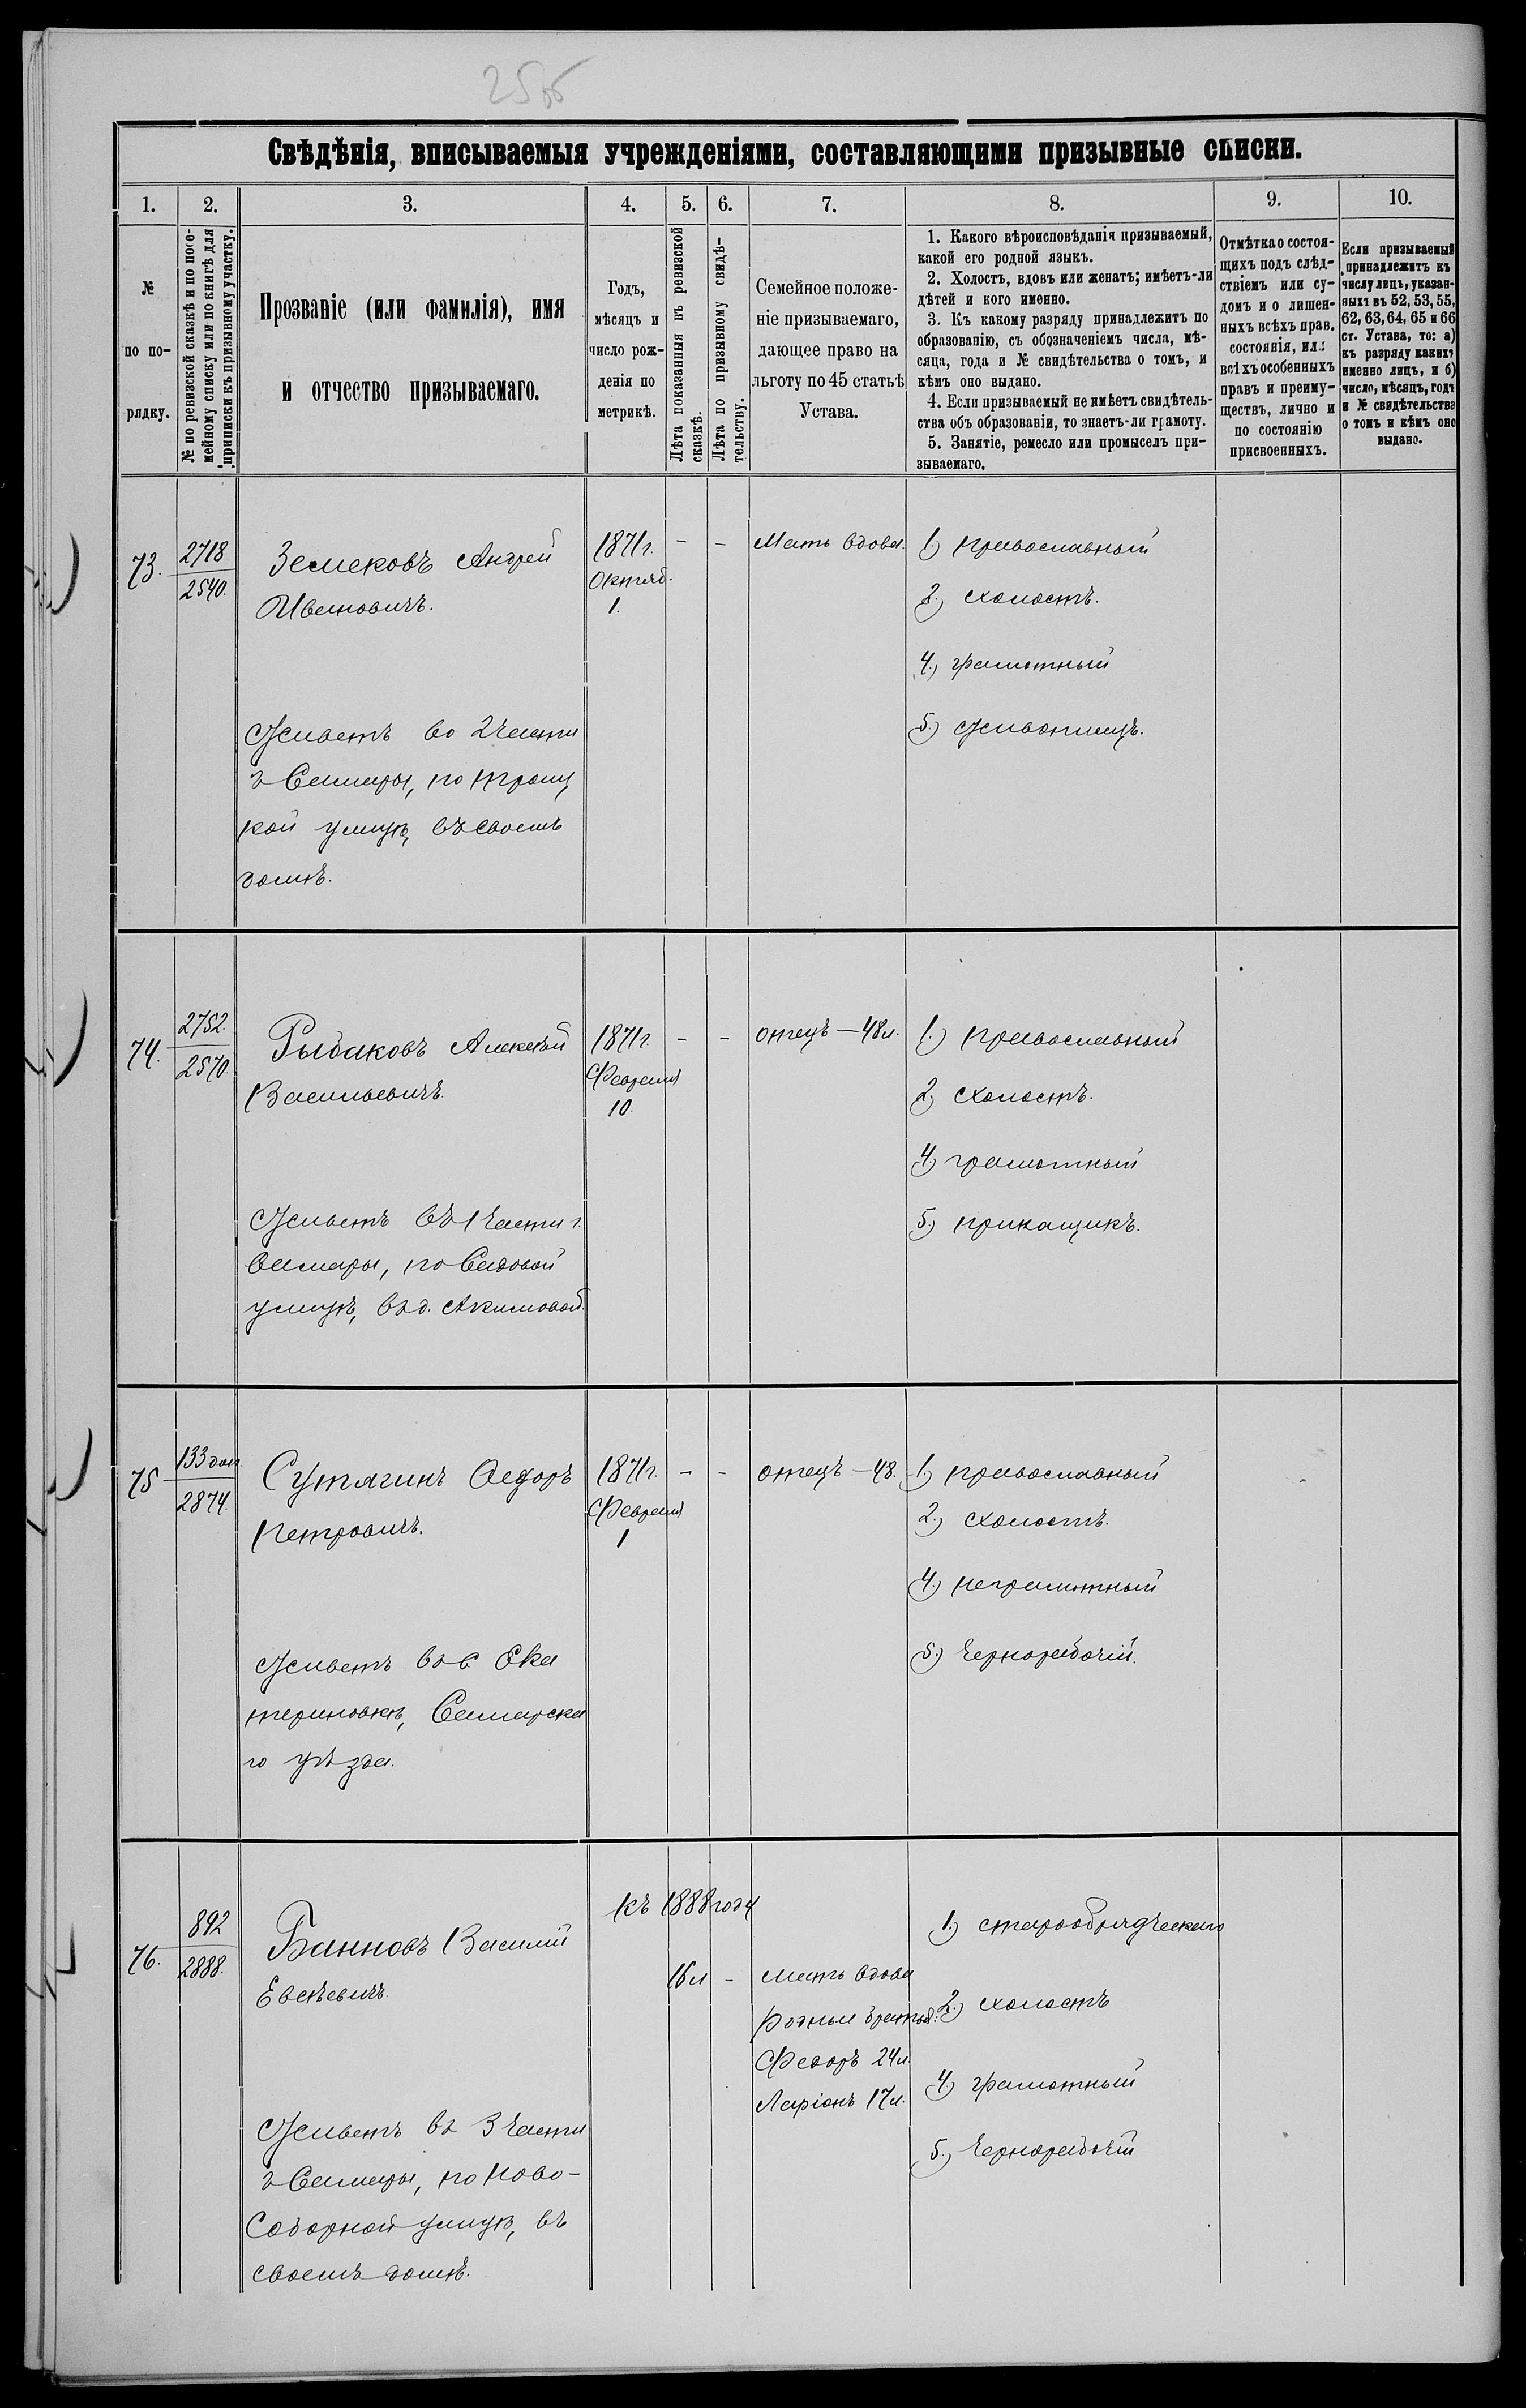 Свѣдѣнія, вписываемыя учрежденіями, составляющими призывные списки.
1. 2. 3. 4. 5. 6. 7. 8. 9. 10.
№
по по-
рядку.
№ по ревизской сказкѣ и по посе-
мейному списку или по книгѣ для
приписки къ призывному участку.
Прозваніе (или фамилія), имя
и отчество призываемаго.
Годъ,
мѣсяцъ и
число рож-
денія по
метрикѣ.
Лѣта показанныя въ ревизской
сказкѣ.
Лѣта по призывному свидѣ-
тельству.
Семейное положе-
ніе призываемаго,
дающее право на
льготу по 45 статьѣ
Устава.
1. Какого вѣроисповѣданія призываемый,
какой его родной языкъ.
2. Холостъ, вдовъ или женатъ; имѣетъ-ли
дѣтей и кого именно.
3. Къ какому разряду принадлежитъ по
образованію, съ обозначеніемъ числа, мѣ-
сяца, года и № свидѣтельства о томъ, и
кѣмъ оно выдано.
4. Если призываемый не имѣетъ свидѣтель-
ства объ образованіи, то знаетъ-ли грамоту.
5. Занятіе, ремесло или промыселъ при-
зываемаго.
Отмѣтка о состоя-
щихъ подъ слѣд-
ствіемъ или су-
домъ и о лишен-
ныхъ всѣхъ прав.
состоянія, или
всѣхъ особенныхъ
правъ и преиму-
ществъ, лично и
по состоянію
присвоенныхъ.
Если призываемый
принадлежитъ къ
числу лицъ, указан-
ныхъ въ 52, 53, 55,
62, 63, 64, 65 и 66
ст. Устава, то: а)
къ разряду какихъ
именно лицъ, и б)
число, мѣсяцъ, годъ
и № свидѣтельства
о томъ и кѣмъ оно
выдано.
73.
2718
2540.
Земсковъ Андрей
Ивановичъ.
Живетъ во 2 части
г Самары, по Троиц
кой улицѣ, въ своемъ
домѣ.
1871 г.
Октяб.
1.
- -
Мать вдова.
1.) православный
2.) холостъ.
4.) грамотный
5.) живописецъ.
74.
2752.
2570.
Рыбаковъ Алексѣй
Васильевичъ.
Живетъ въ 1 части г.
Самары, по Садовой
улицѣ, въ д. Акимовой.
1871 г.
Февраля
10.
- -
отецъ — 48 л.
1.) православный
2.) холостъ.
4.) грамотный
5.) прикащикъ.
75
133 доп
2874.
Сутягинъ Ѳедоръ
Петровичъ.
Живетъ въ с Ека
териновкѣ, Самарска
го уѣзда.
1871 г.
Февраля
1
- -
отецъ — 48.
1.) православный
2.) холостъ.
4.) неграмотный
5.) Чернорабочій.
76.
892
2888.
Банновъ Василій
Евсѣевичъ.
Живетъ въ 3 части
г Самары, по Ново-
Соборной улицѣ, въ
своемъ домѣ.
къ 1888 году
16 л -
мать вдова
родные братья:
Федоръ 24 л
Ларіонъ 17 л.
1.) старообрядческаго
2.) холостъ
4.) грамотный
5.) Чернорабочій